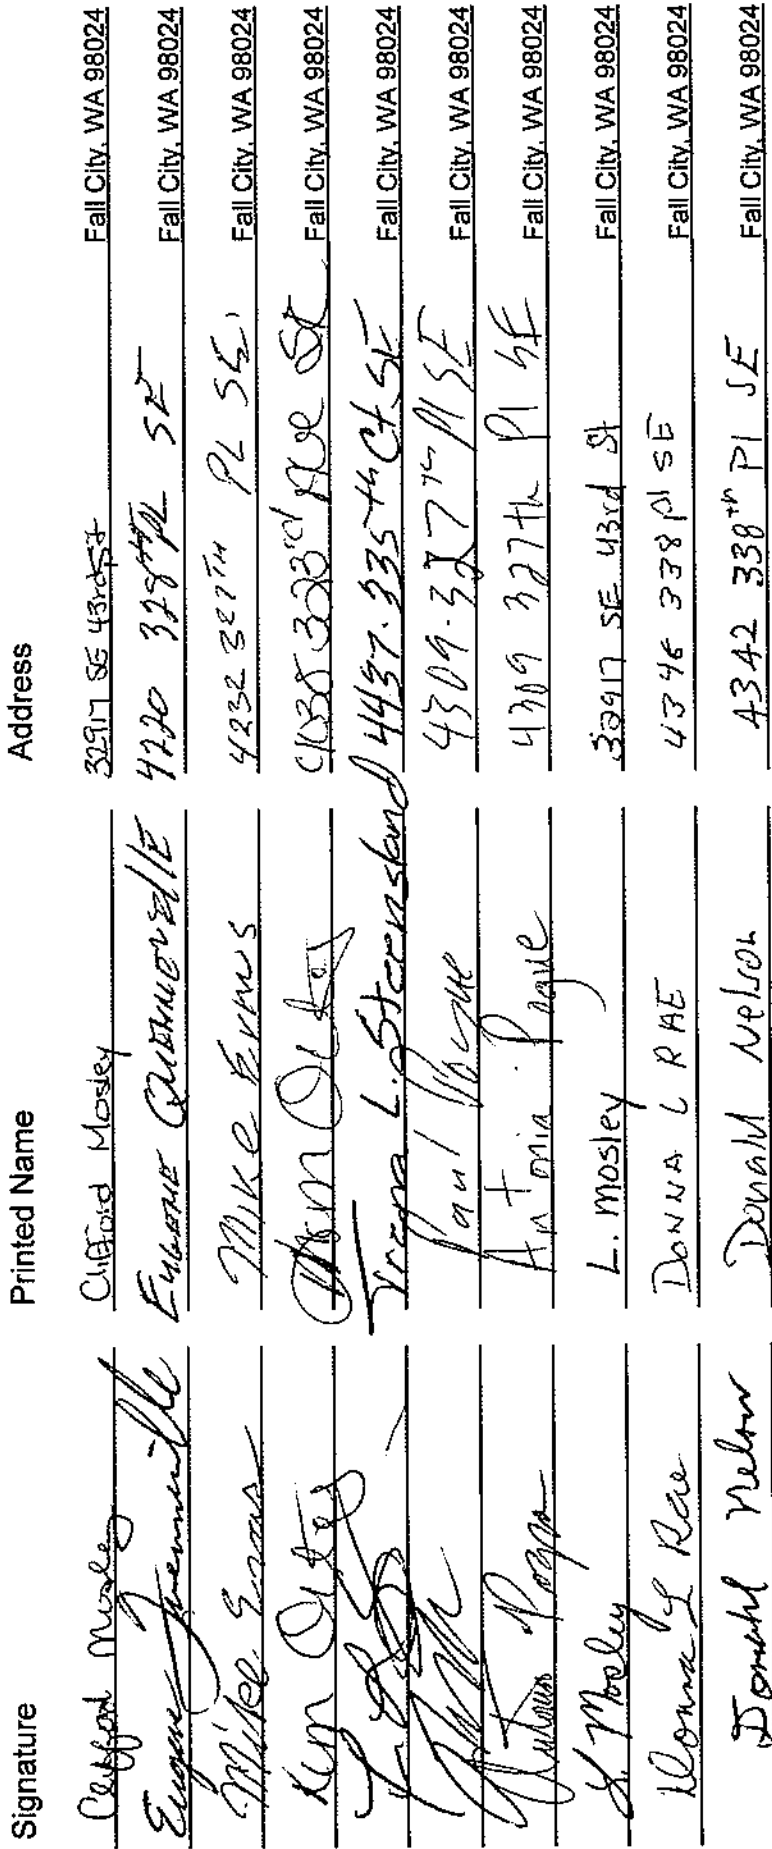 Signature Printed Name Address
Clifford Mosley Clifford Mosley 32917 SE 43rd St Fall City, WA 98024
Eugene Quenneville Eugene Quenneville 4220 328th PL SE Fall City, WA 98024
Mike Evans Mike Evans 4232 327TH PL SE, Fall City, WA 98024
Kim Kim 323rd Ave SE Fall City, WA 98024
L. Steensland 4437-335th Ct SE Fall City, WA 98024
Paul 4309-327th Pl SE Fall City, WA 98024
Antonia Antonia 4309 327th Pl SE Fall City, WA 98024
L. Mosley L. Mosley 32917 SE 43rd St Fall City, WA 98024
Donna L Rae DONNA L RAE 4346 338 pl SE Fall City, WA 98024
Donald Nelson Donald Nelson 4342 338th Pl SE Fall City, WA 98024